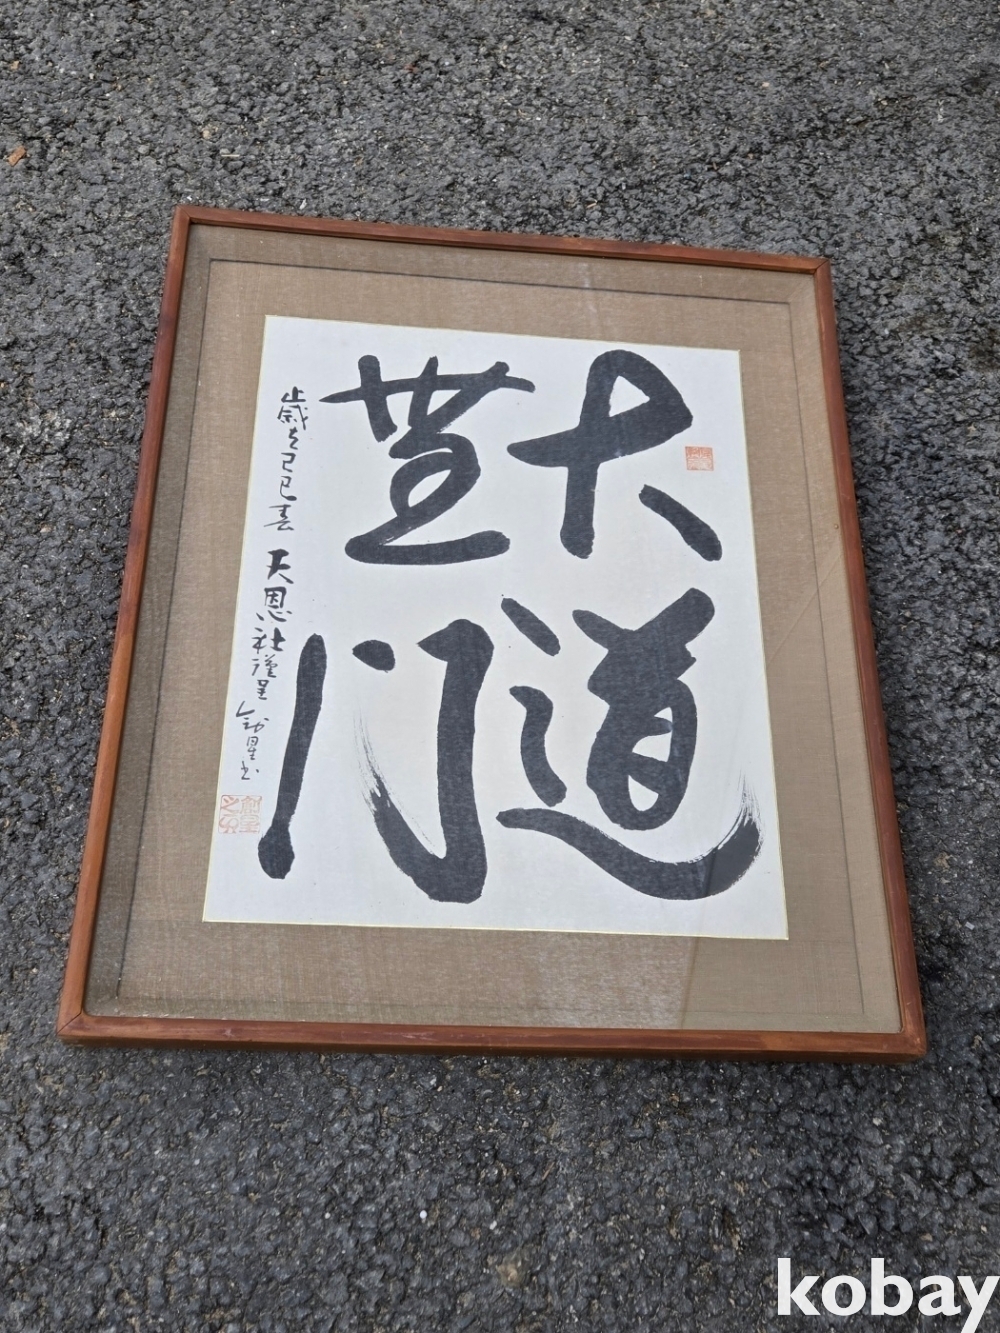 大道
無門
歲己巳春 天恩社謹呈 釗星書
kobay